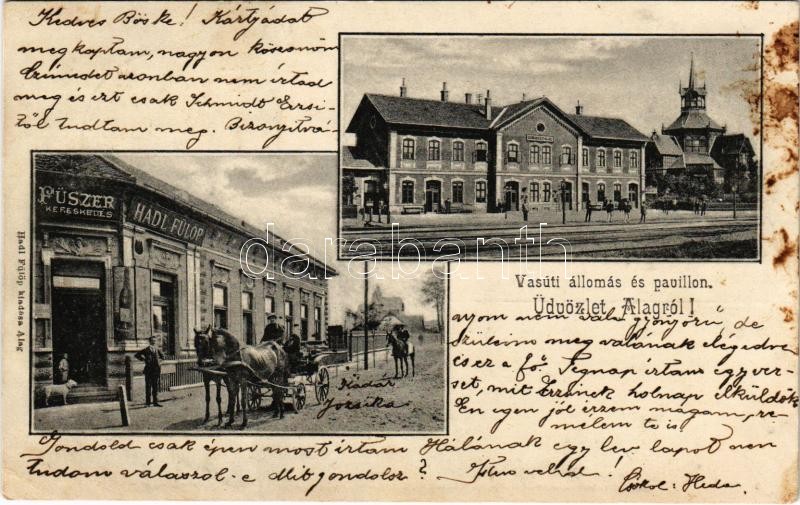 Kedves Böske! Kártyádat
megkaptam, nagyon köszönöm
Czímedet azonban nem írtad
meg és ezt csak Schmidt Erzsi-
től tudtam meg. Bizonyítvá-
FŰSZER
KERESKEDÉS
HADL FÜLÖP
Hadl Fülöp kiadása Alag
darabanth
Vasúti állomás és pavillon.
Üdvözlet Alagról!
Kádár
Józsika
nyom nem valami gyönyörű de
szüleim meg valának elégedve
és ez a fő. Tegnap írtam egy ver-
set, mit Erzinek holnap elküldök
Én igen jól érzem magam, re-
mélem te is
Gondold csak épen most írtam Hálának egy lev. lapot nem
tudom válaszol-e Mit gondolsz? Isten veled!
Csókol: Heda